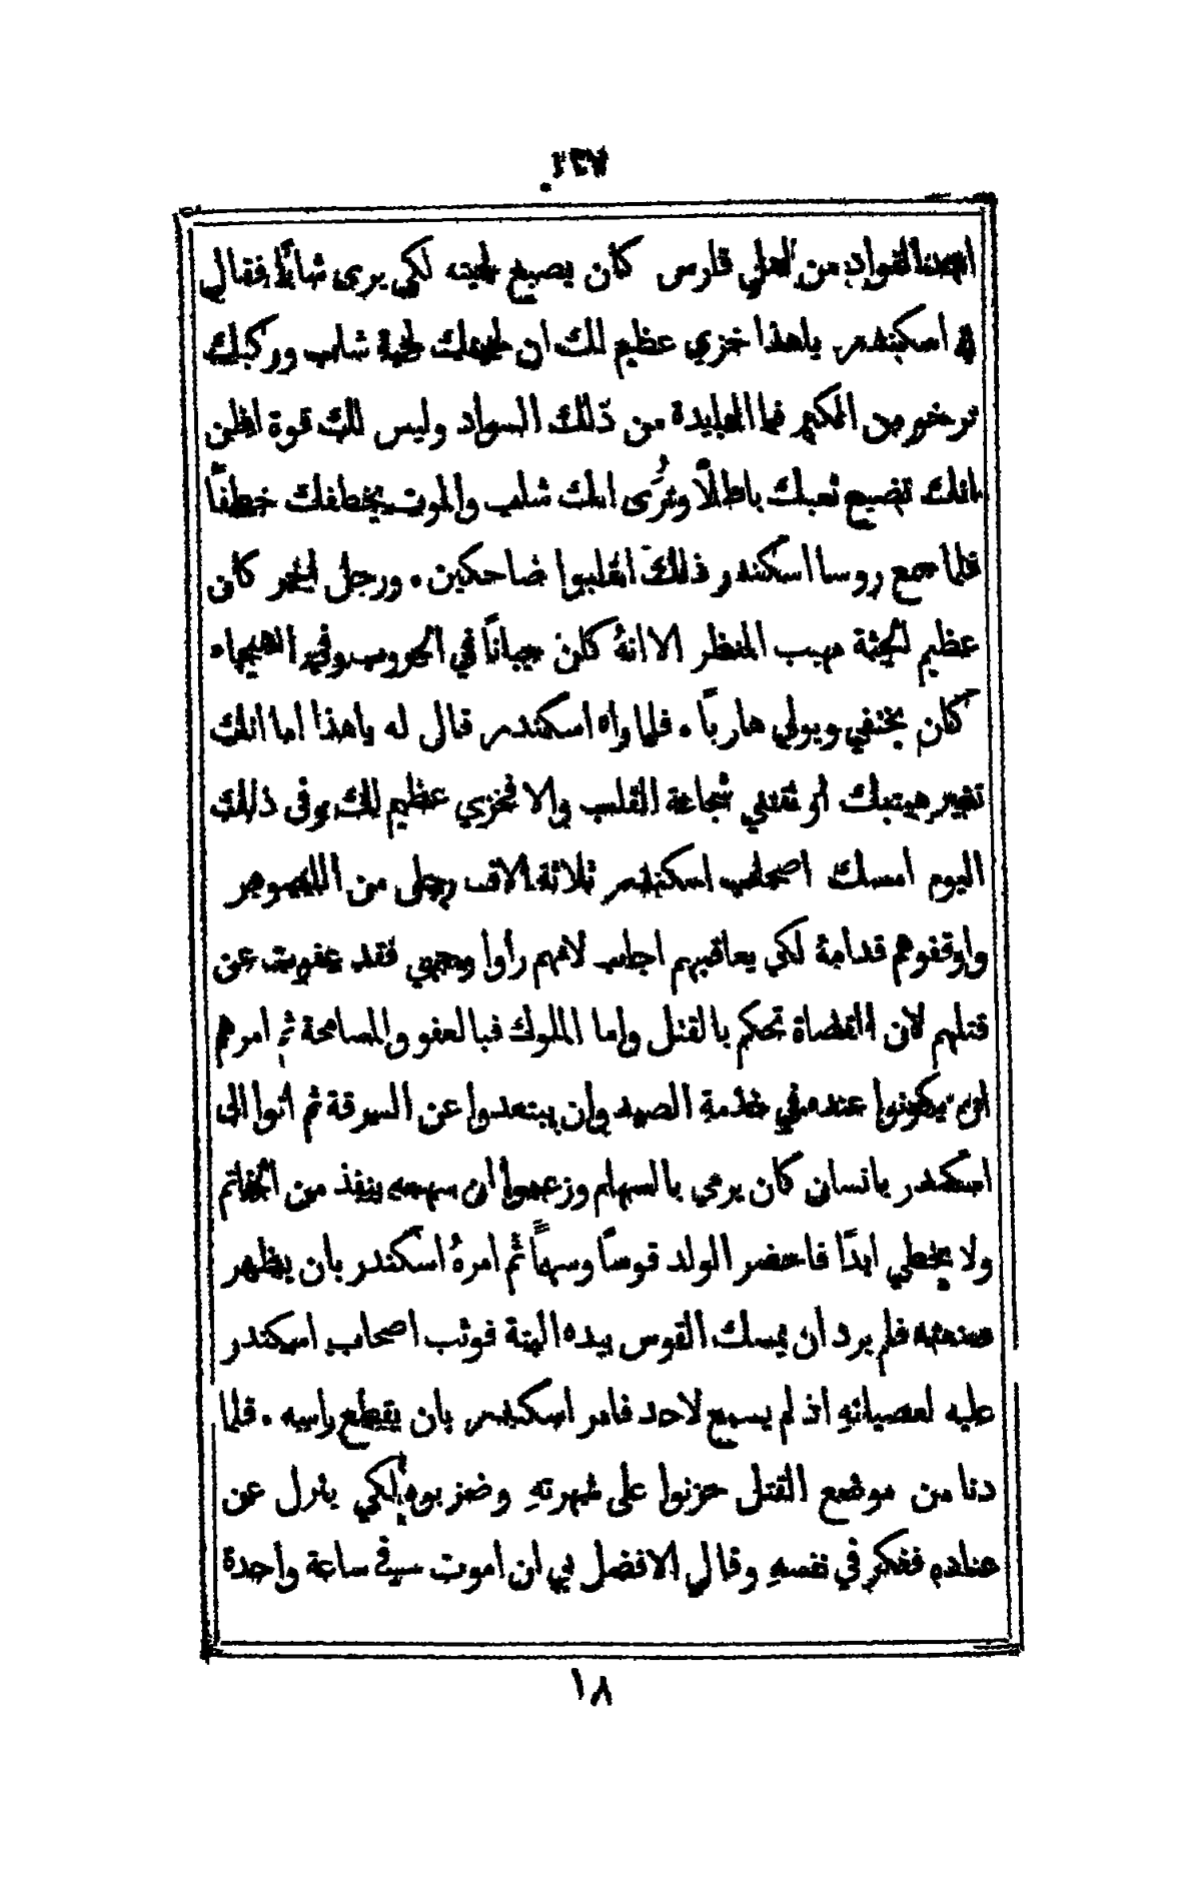 ١٣٧
القواد من اهل فارس كان يصبغ لحيته لكي يرى شابًّا فقال
اسكندر ياهذا خزي عظيم لك ان لحيتك لحية شاب وركبك
من الكبر فما الفايدة من ذلك السواد وليس لك قوة اظن
انك تضيع تعبك باطلًا وتُرَى انك شاب والموت يخطفك خطفًا
فلما سمع روسا اسكندر ذلك انقلبوا ضاحكين . ورجل اخر كان
عظيم الجثة مهيب المنظر الا انهُ كان جبانًا في الحروب وفي الهيجاء
كان يختفي ويولي هاربًا . فلما راه اسكندر قال له ياهذا اما انك
تغير هيبتك او تقتني شجاعة القلب والا فخزي عظيم لك وفي ذلك
اليوم امسك اصحاب اسكندر ثلاثة الاف رجل من اللصوص
واوقفوهم قدامهُ لكي يعاقبهم اجاب لانهم رأوا وجهي فقد عفوت عن
قتلهم لان القضاة تحكم بالقتل واما الملوك فبالعفو والمسامحة ثم امرهم
ان يكونوا عنده في خدمة الصيد وان يبتعدوا عن السرقة ثم اتوا الى
اسكندر بانسان كان يرمي بالسهام وزعموا ان سهمه ينفذ من الخاتم
ولا يخطي ابدًا فاحضر الولد قوسًا وسهمًا ثم امرهُ اسكندر بان يظهر
صنعته فلم يرد ان يمسك القوس بيده البتة فوثب اصحاب اسكندر
عليه لعصيانهِ اذ لم يسمع لاحد فامر اسكندر بان يقطع راسه . فلما
دنا من موضع القتل حزنوا على شهرتهِ وضربوه لكي ينزل عن
عناده ففكر في نفسهِ وقال الافضل لي ان اموت في ساعة واحدة
١٨